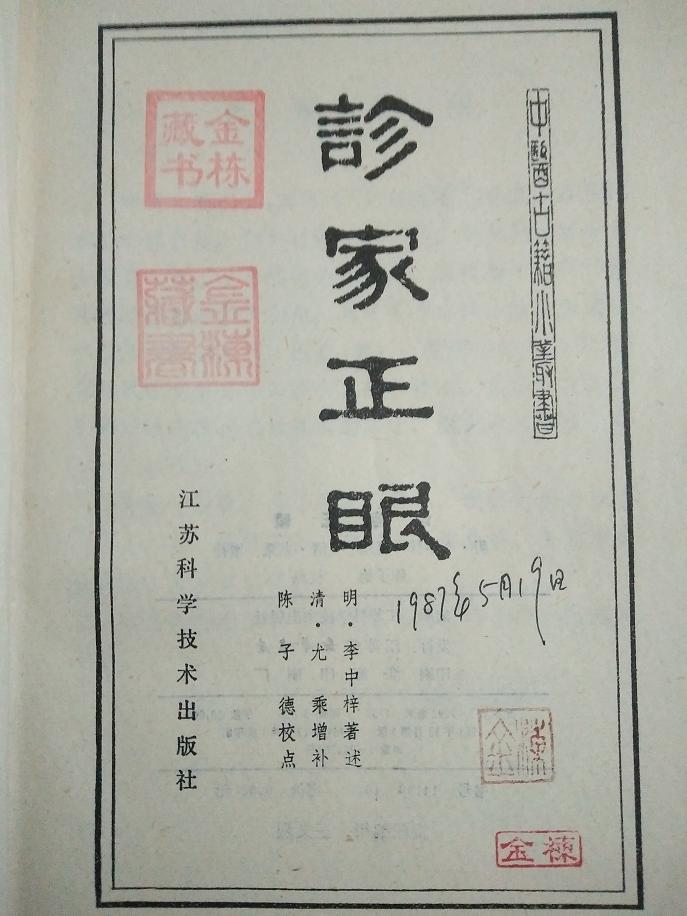 中醫古籍小叢書
診家正眼
明·李中梓著述
清·尤乘增补
陈子德校点
江苏科学技术出版社
1987年5月19日
金栋藏书
金栋藏書
金栋
金栋